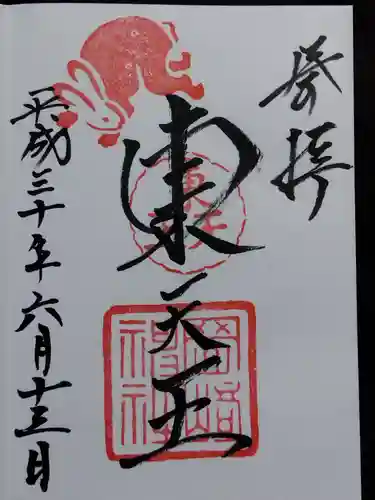 奉拝
東天王
東天王
岡崎神社
平成三十年六月十三日